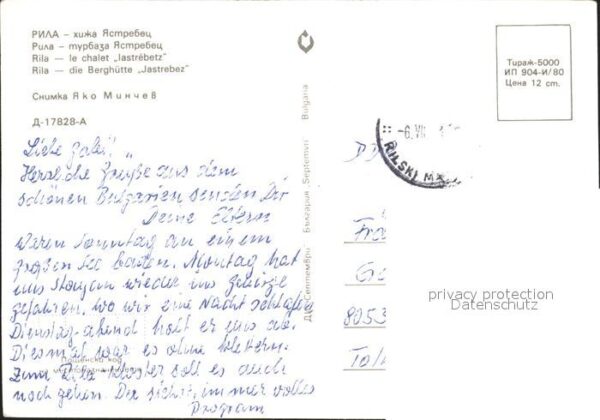 РИЛА – хижа Ястребец
Рила – турбаза Ястребец
Rila — le chalet „Iastrébetz"
Rila — die Berghütte „Jastrebez"
Снимка Яко Минчев
Д-17828-А
Тираж-5000
ИП 904-И/80
Цена 12 cm.
ДП „Септември" България „Septemvri" Bulgaria
-6.VII
RILSKI MA
Liebe Gabi,
Herzliche Grüße aus dem
schönen Bulgarien senden Dir
Deine Eltern
Waren Sonntag an einem
großen See baden. Montag hat
uns Stojan wieder ins Gebirge
gefahren, wo wir eine Nacht schlafen
Dienstag-abend holt er uns ab.
Diesmal war es ohne klettern.
Zum Rila-Kloster soll es auch
noch gehen. Du siehst, immer volles
Program
Пощенски код
DD
Fra
Ge
8053
Tal
privacy protection
Datenschutz